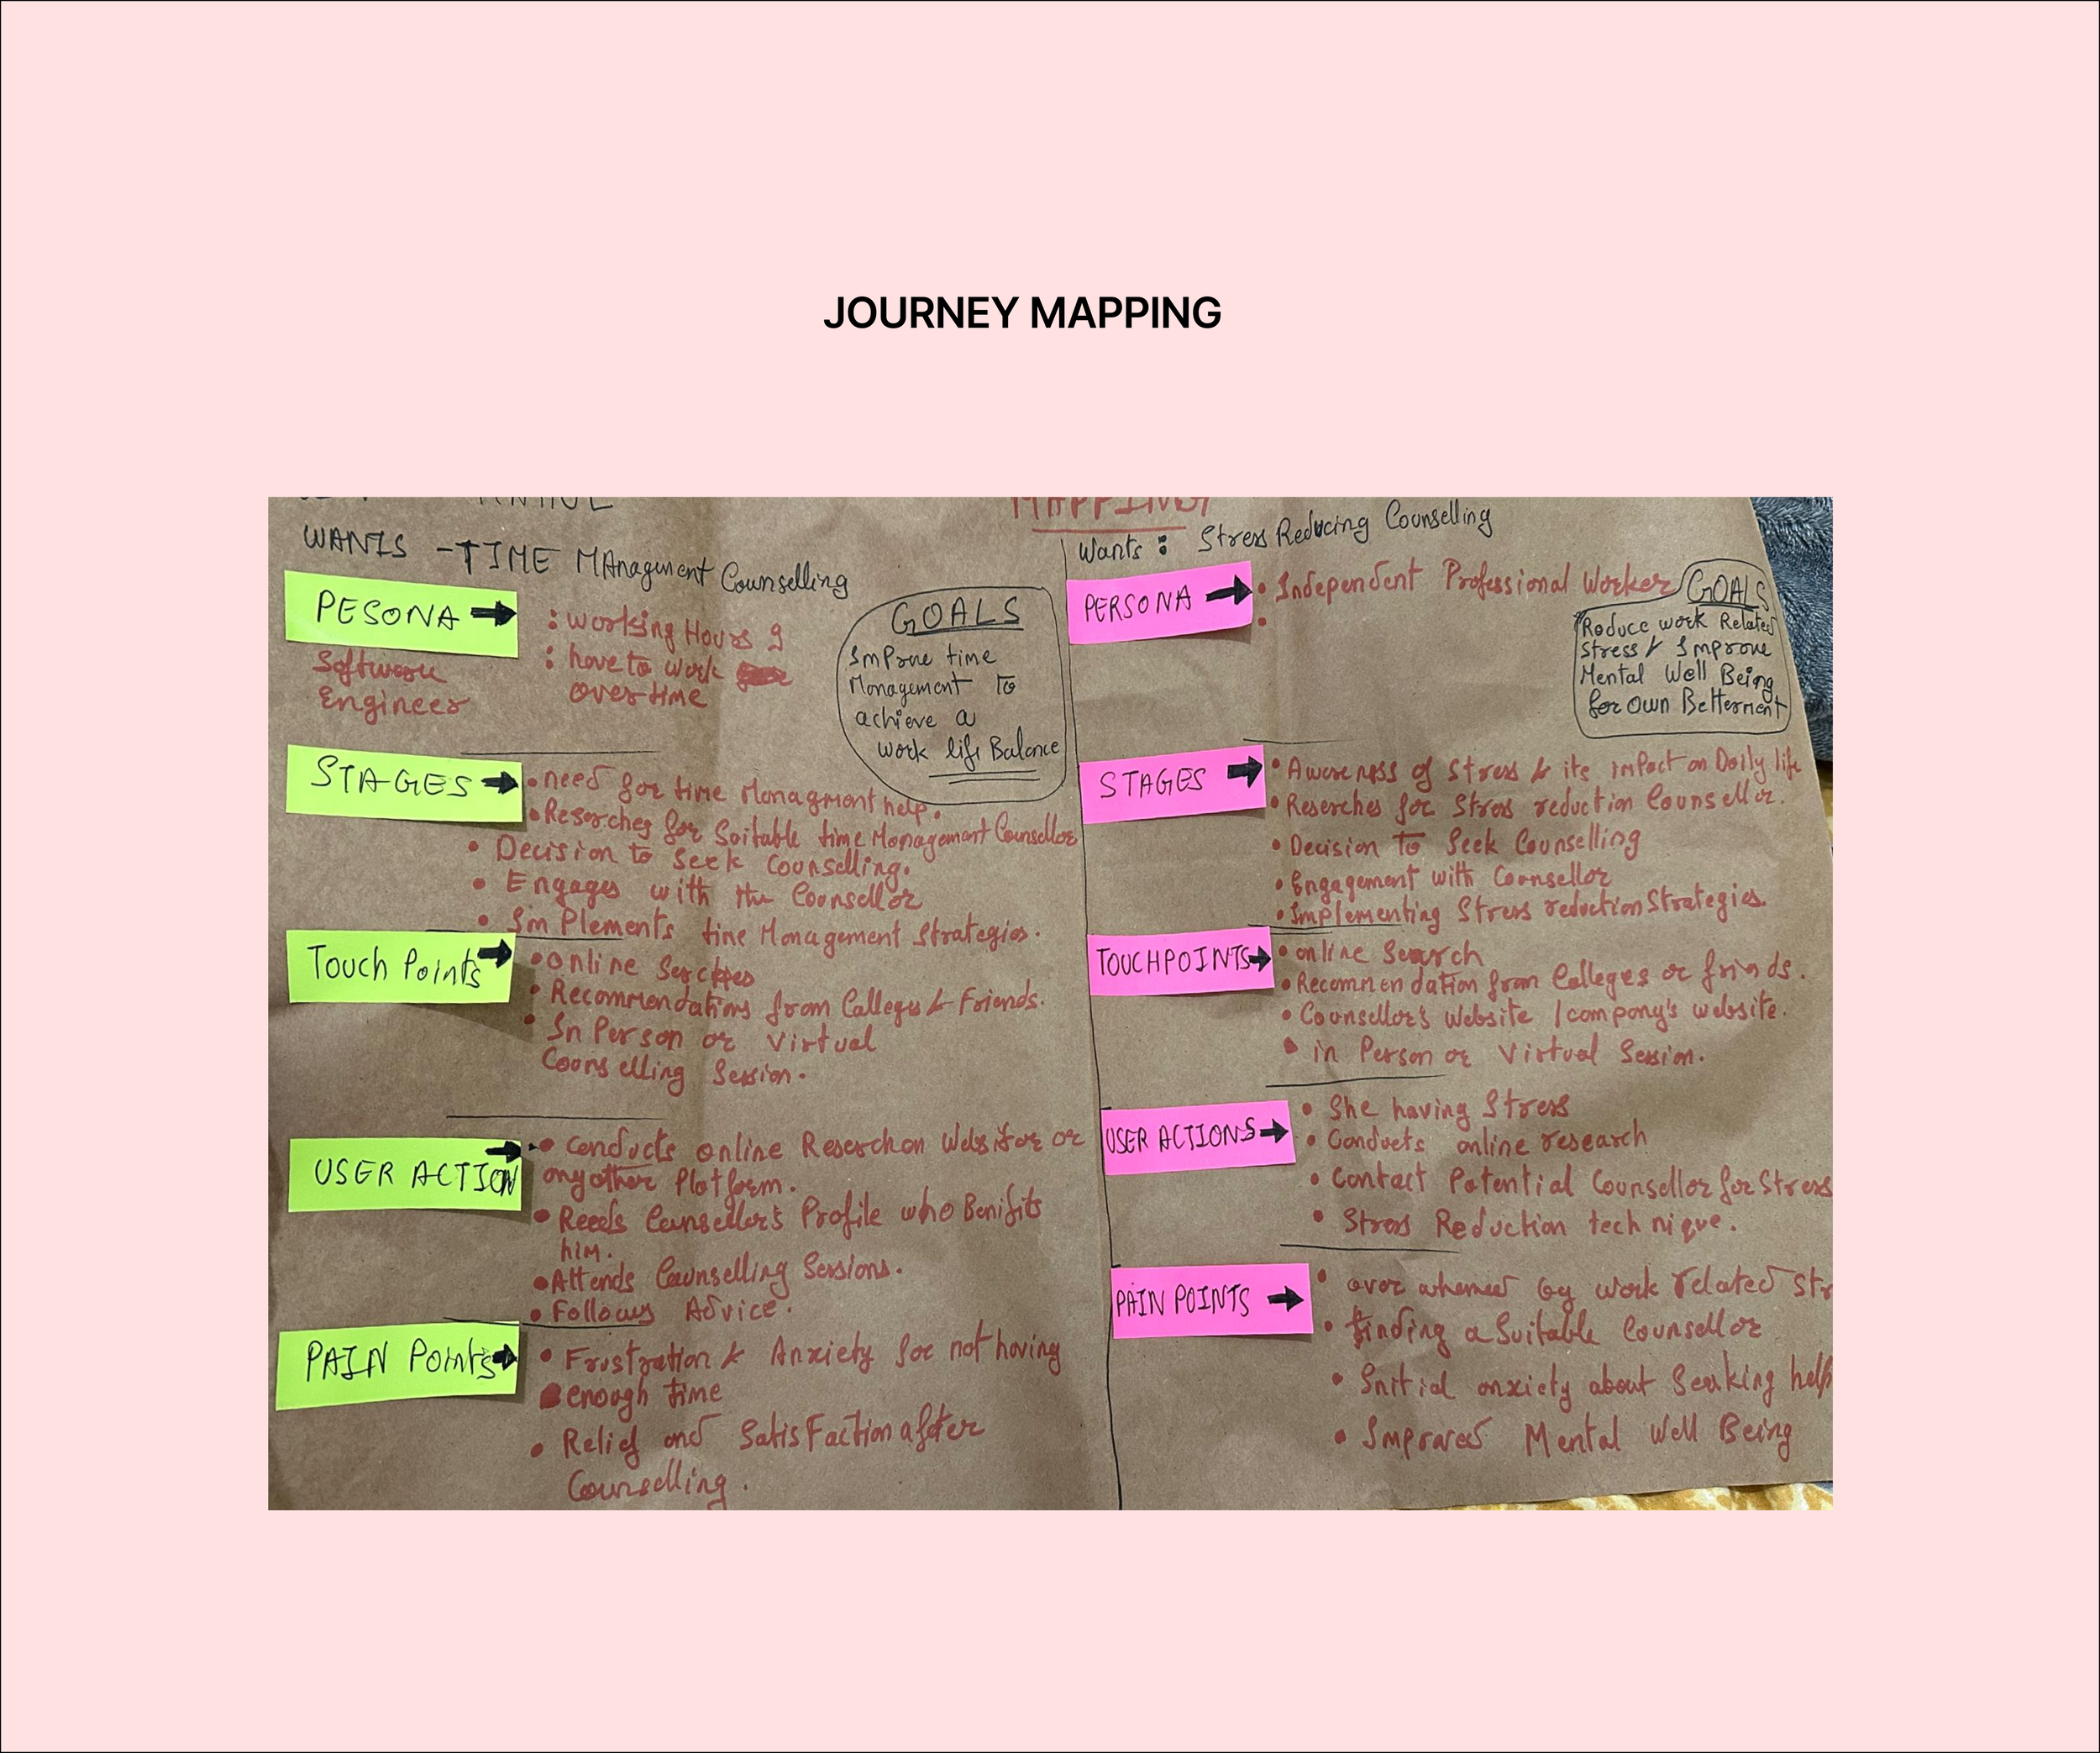 JOURNEY MAPPING
MAPPING
WANTS - TIME MAnagment Counselling
PESONA
Software
Engineer
: working Hours 9
: have to work
overtime
GOALS
ImProve time
Management To
achieve a
work life Balance
STAGES
• need for time Managment help.
• Reserches for Suitable time Management Counsellor
• Decision to Seek Counselling.
• Engages with the Counsellor
• ImPlements time Management Strategies.
Touch Points
• online
• Recommendations from Calleges & Friends.
• In Person or Virtual
Counselling Session.
USER ACTION
• Conducts online Reserch on or
any other Platform.
• Reeds Counsellor's Profile who Benifits
him.
• Attends Counselling Sessions.
• Follows Advice.
PAIN Points
• Frustration & Anxiety for not having
enough time
• Relief and SatisFaction after
Counselling.
Wants : Stress Reducing Counselling
PERSONA
• Independent Professional Worker
•
GOALS
Reduce work Related
Stress & Improve
Mental Well Being
for Own Betterment
STAGES
• Awareness of Stress & its impact on Daily life
• Reserches for Stress reduction Counsellor.
• Decision To Seek Counselling
• Engagement with Counsellor
• Implementing Stress reduction Strategies.
TOUCHPOINTS
• online Search
• Recommendation from Calleges or friends.
• Counsellor's Website / company's website.
• in Person or Virtual Session.
USER ACTIONS
• She having Stress
• Conducts online research
• Contact Potential Counsellor for Stress
• Stress Reduction technique.
PAIN POINTS
• over whemed by work related str
• finding a Suitable Counsellor
• Initial anxiety about Seeking help
• Improved Mental Well Being